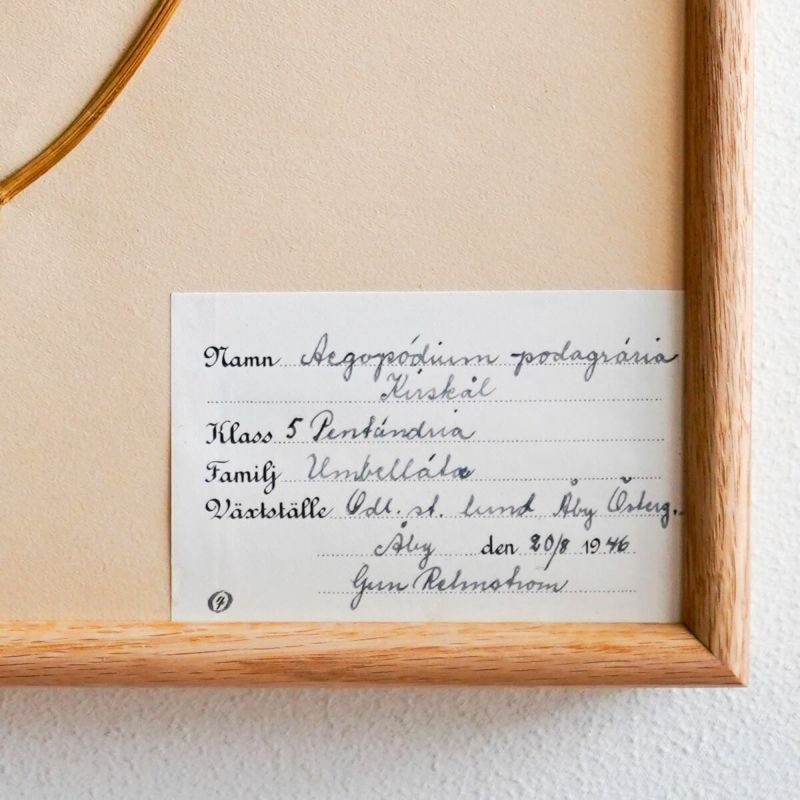 Namn Aegopódium podagrária
Kirskål
Klass 5 Pentándria
Familj Umbellátæ
Växtställe Odl. st. lund Åby Österg.
Åby den 20/8 1946
Gun
4